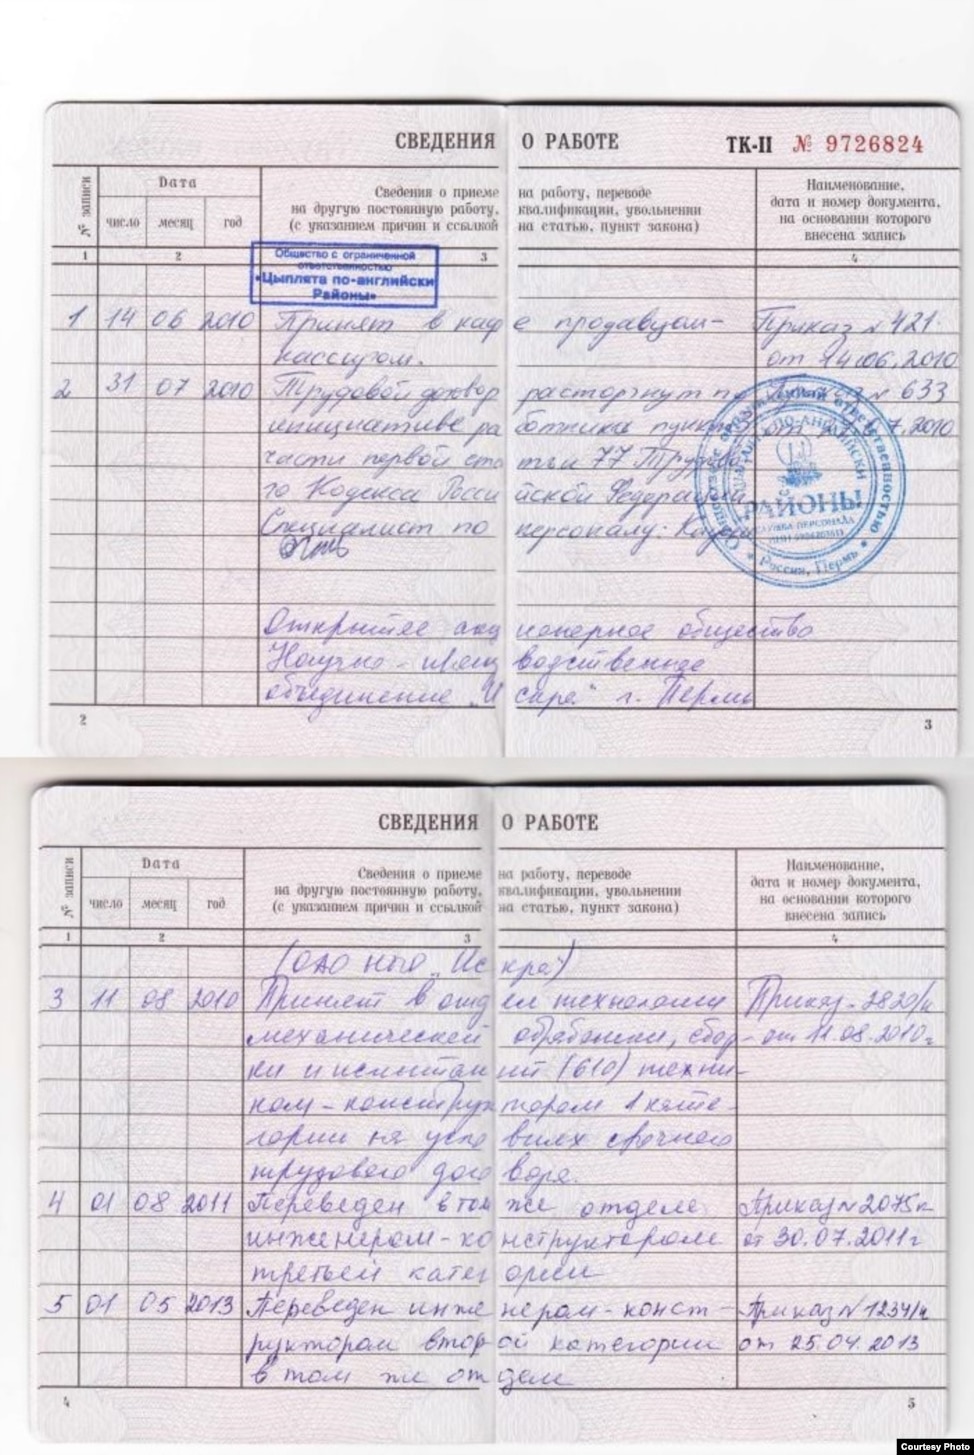 СВЕДЕНИЯ О РАБОТЕ ТК-II № 9726824
№ записи
Дата
число месяц год
Сведения о приеме на работу, переводе
на другую постоянную работу, квалификации, увольнении
(с указанием причин и ссылкой на статью, пункт закона)
Наименование,
дата и номер документа,
на основании которого
внесена запись
1 2 3 4
Общество с ограниченной
ответственностью
«Цыплята по-английски
Районы»
1 14 06 2010 Принят в кафе продавцом- Приказ № 421
кассиром. от 14.06.2010
2 31 07 2010 Трудовой договор расторгнут по Приказ № 633
инициативе работника пункт 3 от 7.2010
части первой статьи 77 Трудово
го Кодекса Российской Федерации
Специалист по персоналу:
РАЙОНЫ
СЛУЖБА ПЕРСОНАЛА
Россия, Пермь
Открытое акционерное общество
Научно-производственное
объединение "Искра" г. Пермь
2 3
СВЕДЕНИЯ О РАБОТЕ
№ записи
Дата
число месяц год
Сведения о приеме на работу, переводе
на другую постоянную работу, квалификации, увольнении
(с указанием причин и ссылкой на статью, пункт закона)
Наименование,
дата и номер документа,
на основании которого
внесена запись
1 2 3 4
(ОАО НПО "Искра")
3 11 08 2010 Принят в отдел технологии Приказ-2820/к
механической обработки, сбор- от 11.08.2010г
ки и испытаний (610) техни-
ком-конструктором 1 кате-
гории на условиях срочного
трудового договора.
4 01 08 2011 Переведен в том же отделе Приказ № 2075к
инженером-конструктором от 30.07.2011г
третьей категории
5 01 05 2013 Переведен инженером-конст- Приказ № 1234/к
руктором второй категории от 25.04.2013
в том же отделе
4 5
Courtesy Photo